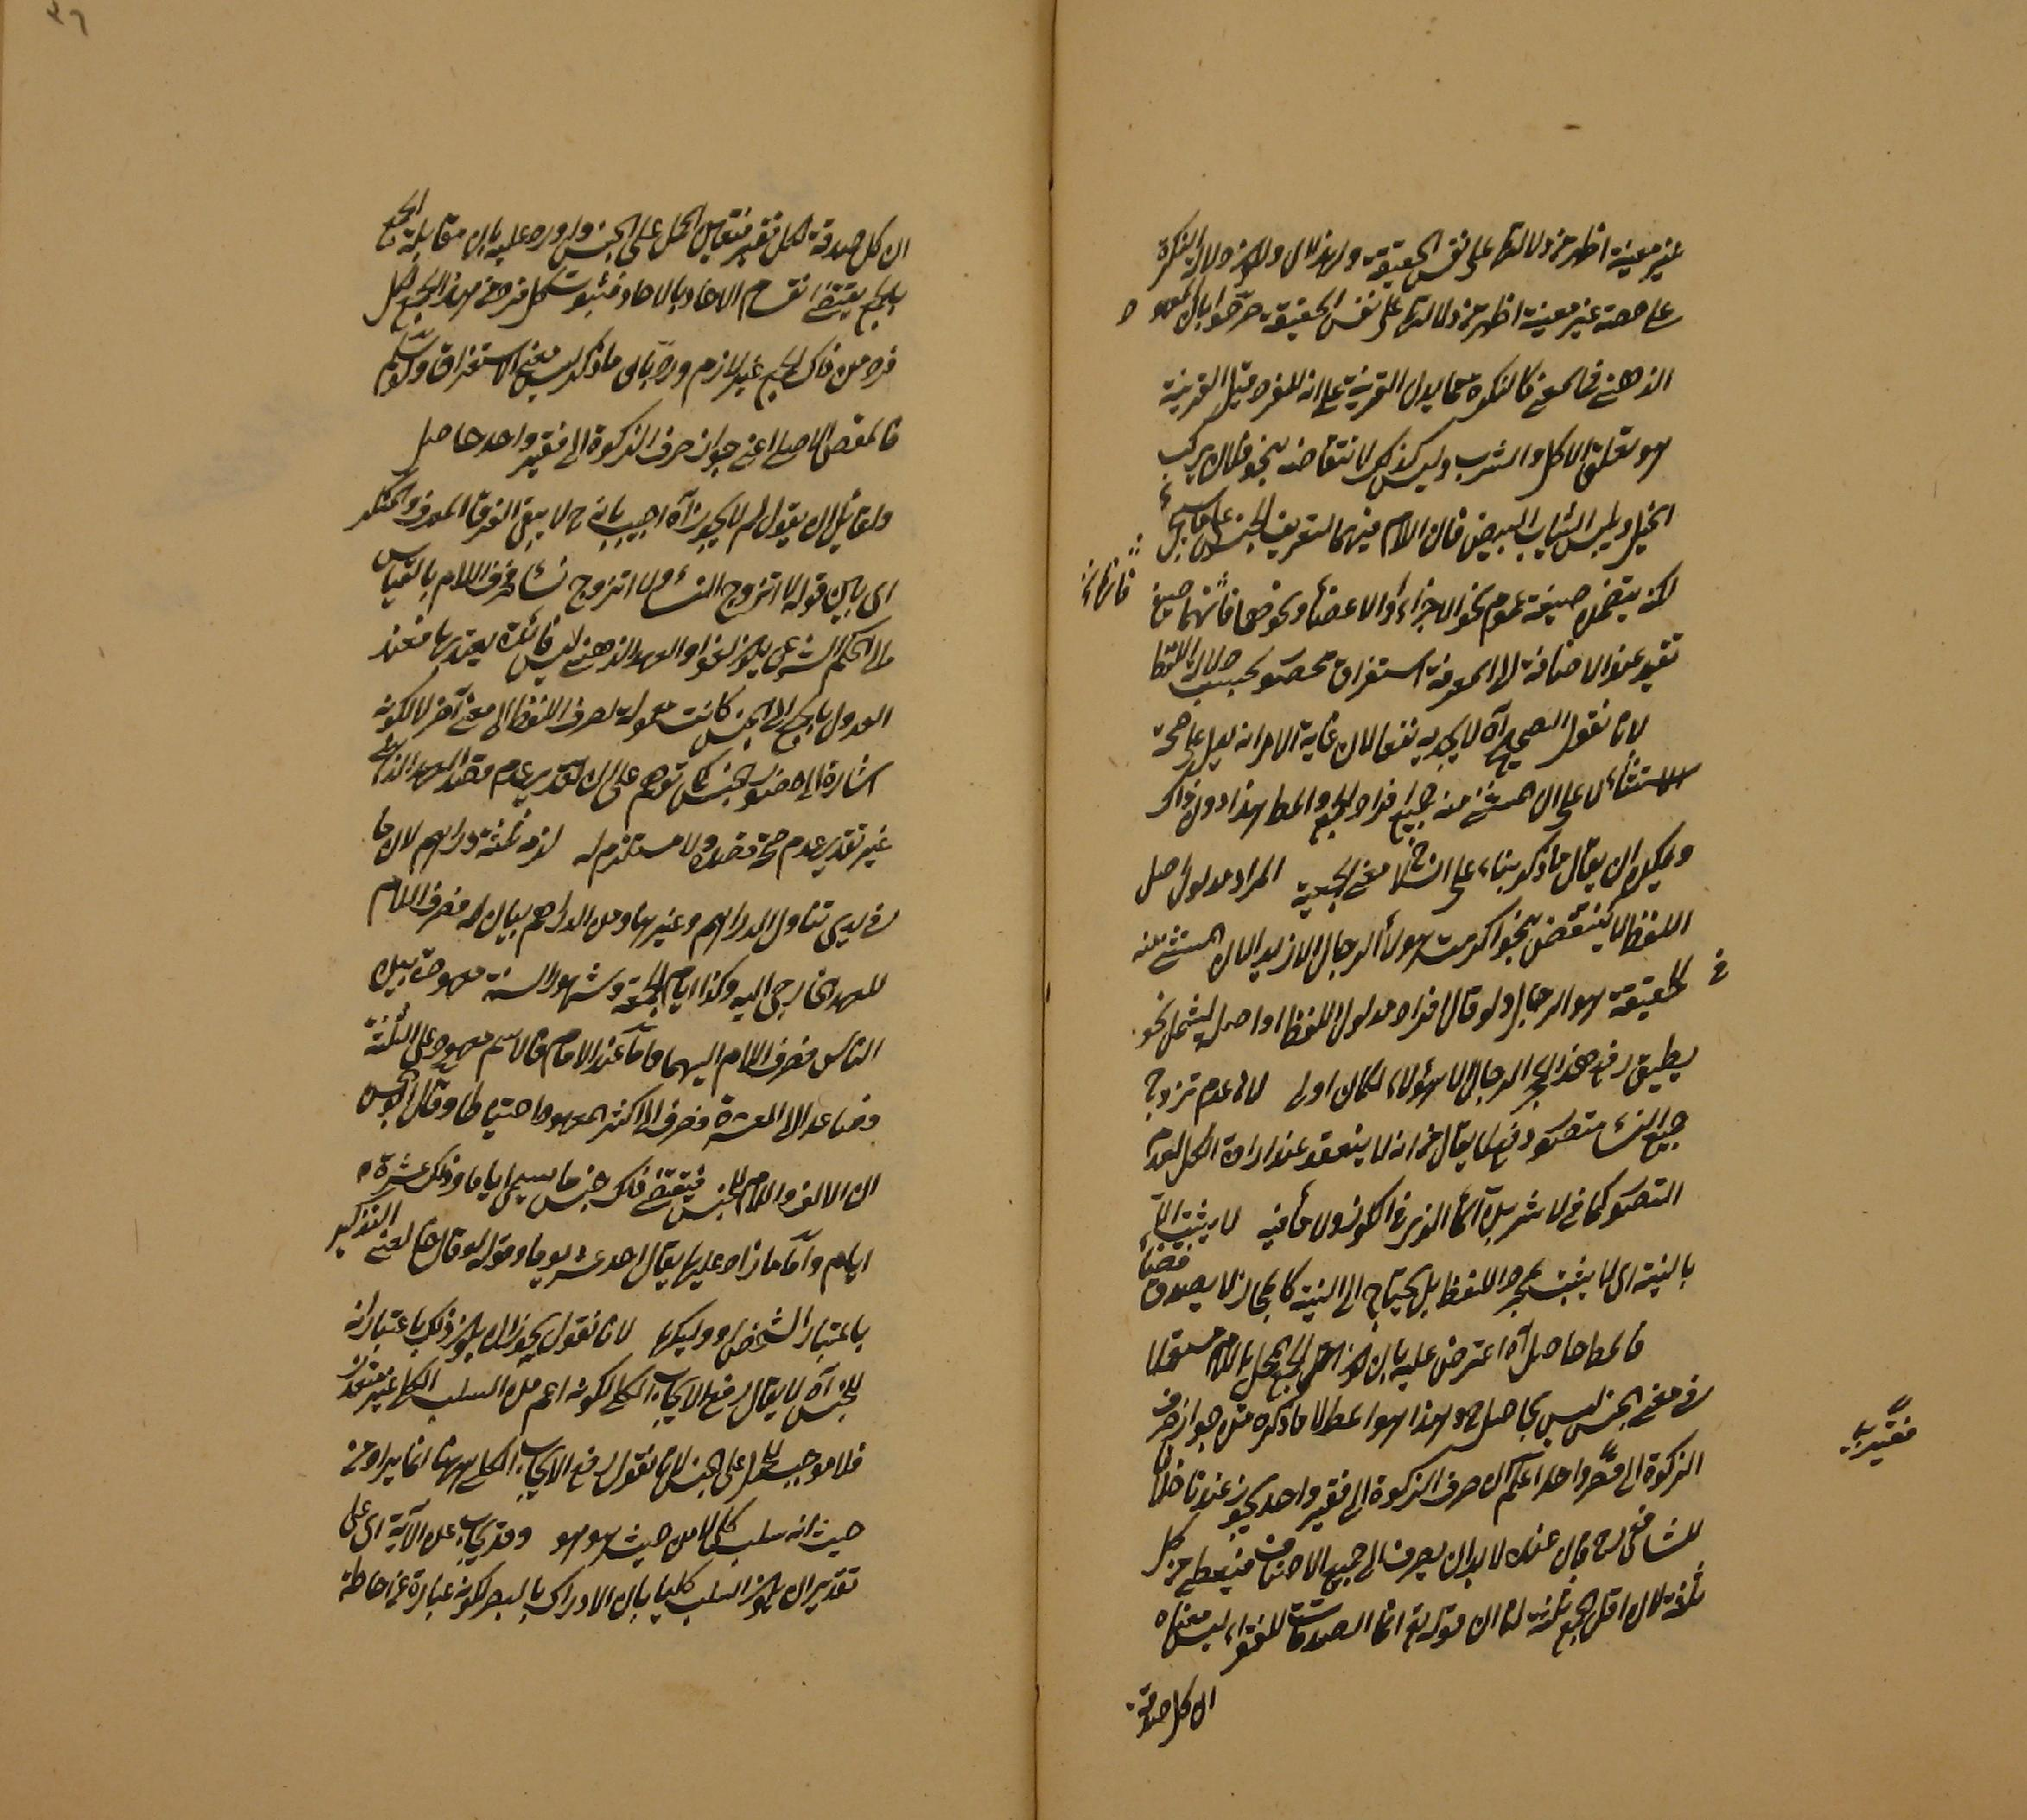 غير معينة اظهر من دلالتها على نفس الحقيقة ولهذا اى ولكون دلالة النكرة
على حصة غير معينة اظهر من دلالتها على نفس الحقيقة صرحوا بان المعهود
الذهنى فى المعنى كالنكرة مما يدل القرينة على انه للفرد مثل القرينة
هو تعلق الاكل والشرب وليس كذلك لانتقاضه بنحو فلان يركب
الخيل ويلبس الثياب البيض فان اللام فيهما لتعريف الجنس على ما سيجئ
لكنه يتضمن صيغة عموم نحو الاجزاء والاعضاء ونحوهما فانهما صيغ
فانهما
تفيد عند الاضافة الى المعرفة استغراق محصور بحسب دلالة اللفظ
لانا نقول الصحيح آه لا يجديه نفعا لان غاية الامر انه يدل على صحة
الاستثناء لا على ان المستثنى منه جميع افراد الجمع والمط هذا دون ذاك
ويمكن ان يقال ما ذكر بناء على انسلاخ معنى الجمعية المراد مدلول اصل
اللفظ لئلا ينتقض بنحو اكرمت هؤلاء الرجال الا زيدا لان المستثنى منه
فى الحقيقة هو الرجال ولو قال افراد مدلول اللفظ او اصله ليشمل نحو
يطيق رفع هذا الحجر الرجال لا هؤلاء لكان اولى لان عدم تزوج
جميع النساء متصور دفع لما يقال من انه لا ينعقد عند ارادة الكل لعدم
التصور كما فى لاشربن آه الماء الذى فى الكوز ولا ماء فيه لا يثبت الا
بالنية اى لا يثبت بمجرد اللفظ بل يحتاج الى النية كالمجاز لا يصدق قضاء
فالمط حاصل آه اعترض عليه بان كون الجمع المحلى باللام مستعملا
فى معنى الجنس ليس بحاصل ح وهذا هو المط لا ما ذكره من جواز صرف
الزكوة الى فقير واحد اعلم ان صرف الزكوة الى فقير واحد يجوز عندنا خلافا
فقير
للشافعى رح فان عنده لا بد ان يصرف الى جميع الاصناف فيعطى من كل
ثلثة لان اقل الجمع ثلثة لنا ان قوله تع انما الصدقات للفقراء ليس معناه
ان كل صدقة
٣٦
ان كل صدقة لكل فقير فتعين الحمل على الجنس واورد عليه بان مقابلة الجمع
بالجمع يقتضى انقسام الآحاد بالآحاد فثبوت كل فرد من هذا الجمع لكل
فرد من ذاك الجمع غير لازم ورد بان ما ذكر ليس معنى الاستغراق ولو سلم
فالمقصد الاصلى اعنى جواز صرف الزكوة الى فقير واحد حاصل
ولقائل ان يقول لم لا يجوز آه اجيب بانه ح لا يبقى الفرق المعرف والمنكر
اى بين قوله لا اتزوج النساء ولا اتزوج نساء فحرف اللام بالقياس
الى الحكم الشرعى يكون لغوا والعهد الذهنى ليس فائدة يعتد بها فعند
العدول بالجمع الى الجنس كانت معونة لصرف اللفظ الى معنى آخر لا لكونه
اشارة الى حضور الجنس كما توهم على ان تقدير عدم قصد العهد الذهنى
غير تقدير عدم صحة قصده ولا مستلزم له لزمه ثلثة دراهم لان ما
فى يدى تناول الدراهم وغيرها ومن الدراهم بيان له فصرف اللام
للعهد الخارجى اليه وكذا ايام الجمعة وشهور السنة معهودة بين
الناس فصرف اللام اليهما واما عند الامام فالاسم معهود على الثلثة
فصاعدا الى العشرة فصرف الى اكثر المعهود احتياطا وقال الجرجانى
ان الالف واللام للجنس فيقتضى ذلك جنس ما يسمى اياما وذلك عشرة
ايام واما ما زاد عليها يقال احد عشر يوما وقوله لو قال هما لعنى التذكير
باعتبار الشخص ووليكها لانا نقول يجوز ان يكون ذلك باعتبار انه
للجنس آه لا يقال رفع الايجاب الكلى لكونه اعم من السلب الكلى غير متعذر
فلا موجب للحمل على الجنس لانا نقول رفع الايجاب الكلى ههنا انما يراد من
حيث انه سلب كلى لا من حيث هو هو وقد يجاب عن الآية اى على
تقدير ان يكون السلب كليا بان الادراك بالبصر لكونه عبارة عن احاطة